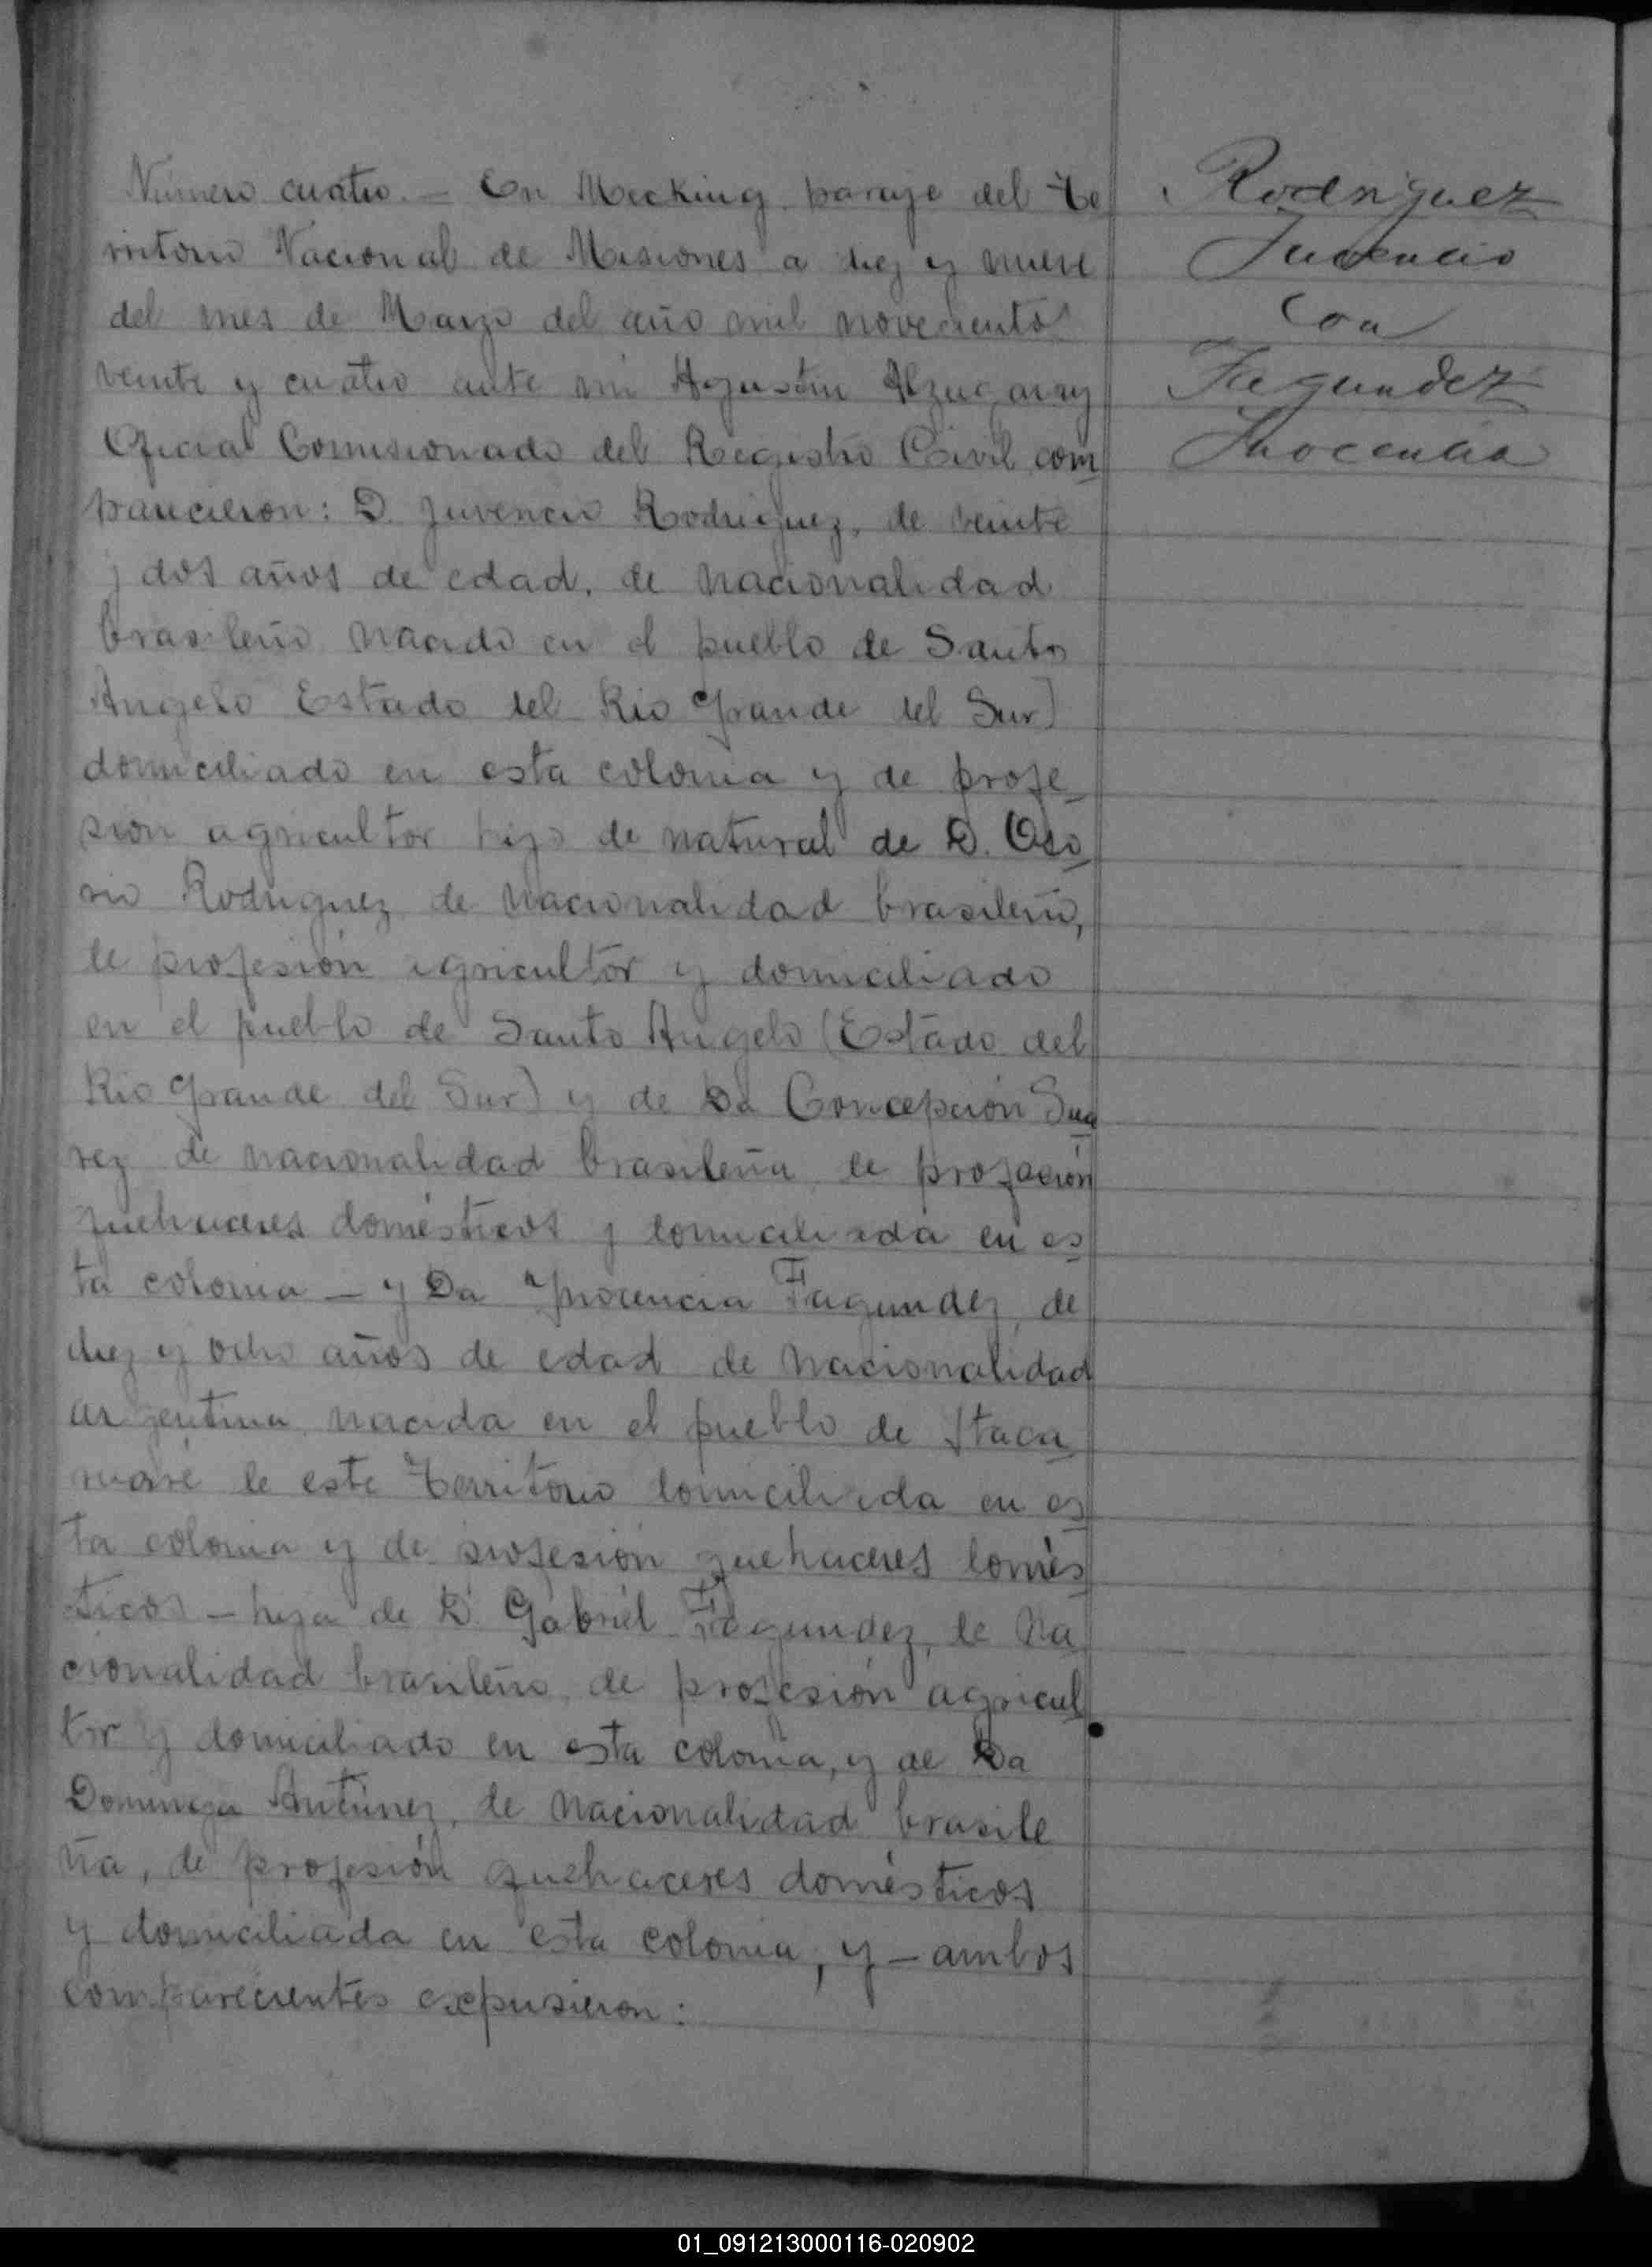 Número cuatro. — En Mecking paraje del Te
rritorio Nacional de Misiones a diez y nueve
del mes de Marzo del año mil novecientos
veinte y cuatro ante mi Agustin Alzugaray
Oficial Comisionado del Registro Civil com
parecieron: D. Juvencio Rodriguez, de veinte
y dos años de edad, de nacionalidad
brasileño nacido en el pueblo de Santo
Angelo Estado del Rio Grande del Sur)
domiciliado en esta colonia y de profe
sión agricultor hijo de natural de D. Oso
rio Rodriguez de nacionalidad brasileño,
de profesión agricultor y domiciliado
en el pueblo de Santo Angelo (Estado del
Rio Grande del Sur) y de Da Concepción Sua
rez de nacionalidad brasileña de profesión
quehaceres domésticos y domiciliada en es
ta colonia — y Da Ynocencia Fagundez, de
diez y ocho años de edad de nacionalidad
argentina nacida en el pueblo de Itaca
ruaré de este Territorio domiciliada en es
ta colonia y de profesión quehaceres domés
ticos — hija de D. Gabriel Fagundez, de na
cionalidad brasileño, de profesión agricul
tor y domiciliado en esta colonia, y de Da
Dominga Antúnez, de nacionalidad brasile
ña, de profesión quehaceres domésticos
y domiciliada en esta colonia, y — ambos
comparecientes expusieron:
Rodriguez
Juvencio
con
Fagundez
Inocencia
01_091213000116-020902